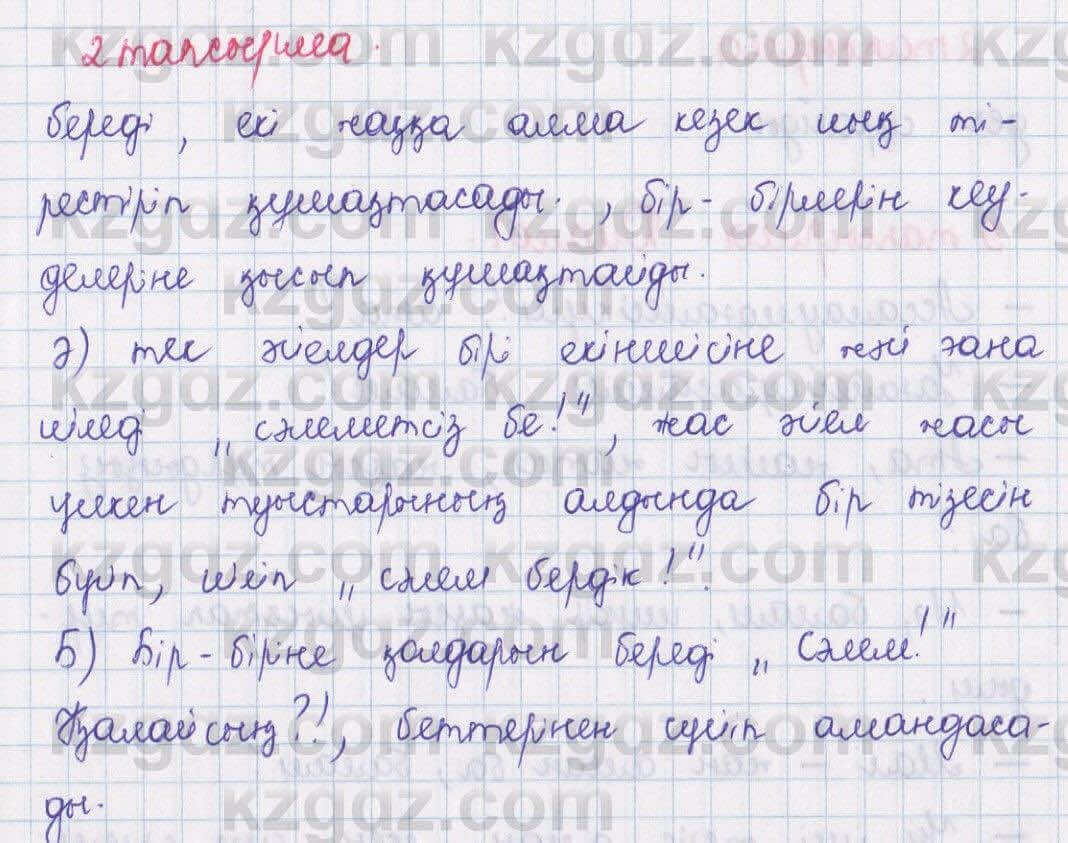 2 тапсырма.
береді, екі жаққа алма кезек иық ті-
рестіріп құшақтасады., бір-бірлерін кеу-
делеріне қысып құшақтайды.
ә) тек әйелдер бірі екіншісіне жәі ғана
иіледі „сәлеметсіз бе!", жас әйел жасы
үлкен туыстарының алдында бір тізесін
бүгіп, иіліп „сәлем бердік!".
Б) Бір-біріне қолдарын береді „Сәлем!"
Қалайсың?!, беттерінен сүйіп амандаса-
ды.
kzgdz.com